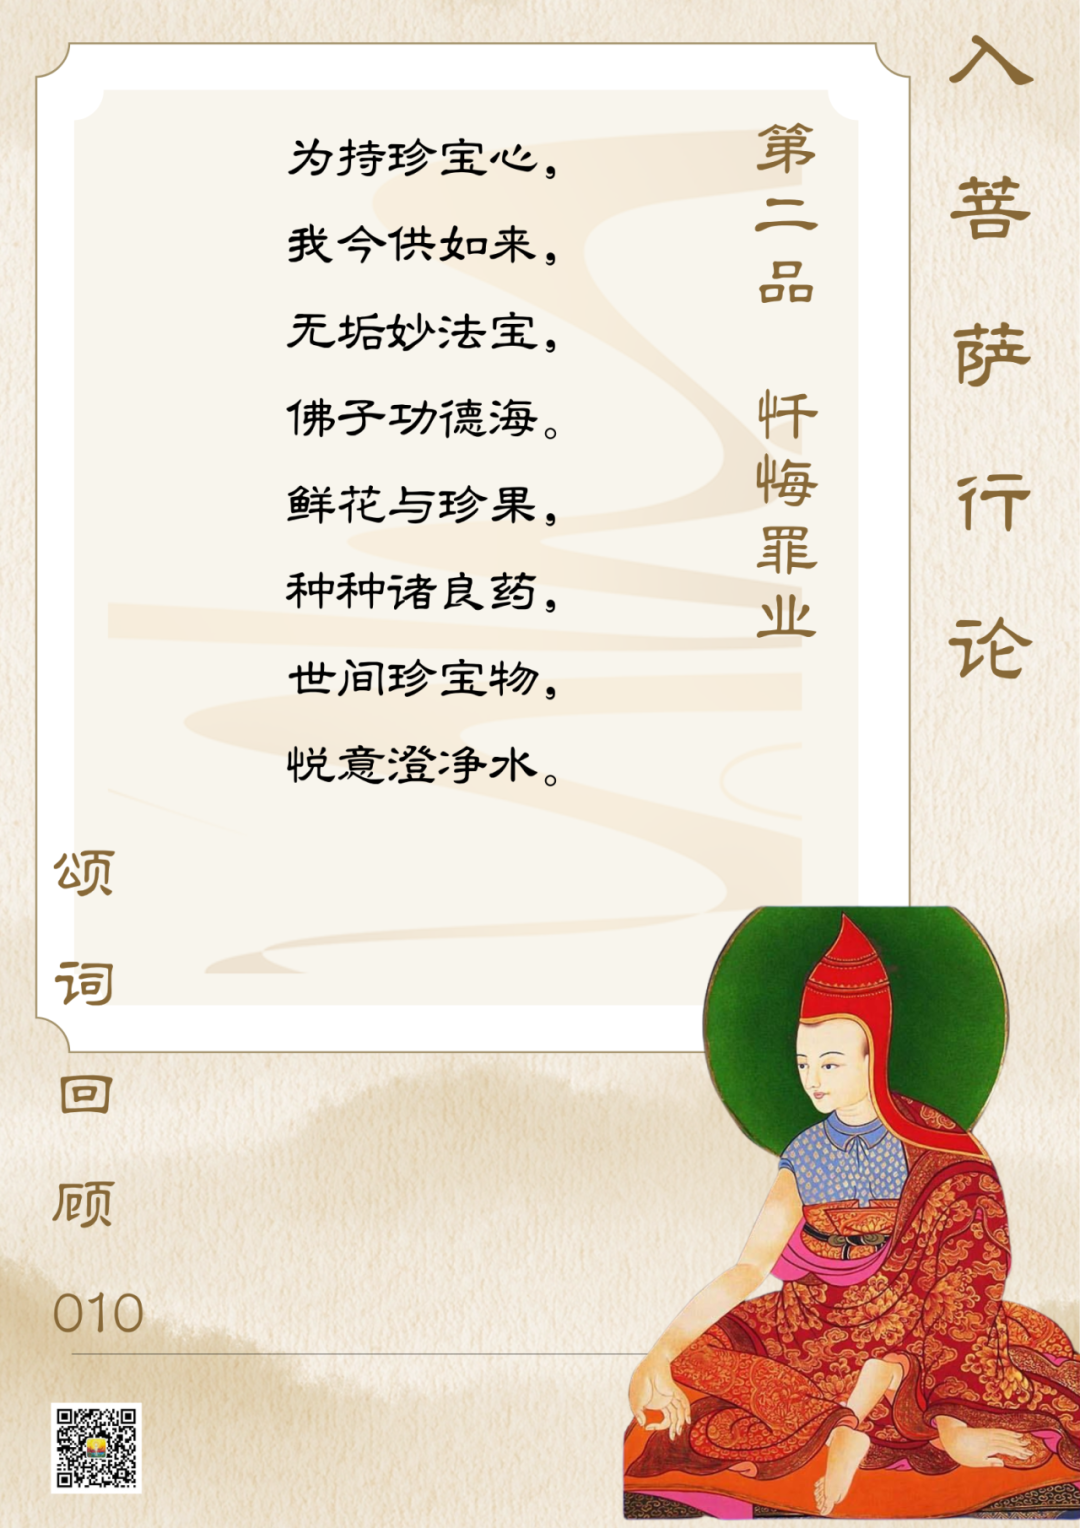 入菩萨行论
第二品 忏悔罪业
为持珍宝心，
我今供如来，
无垢妙法宝，
佛子功德海。
鲜花与珍果，
种种诸良药，
世间珍宝物，
悦意澄净水。
颂词回顾
010